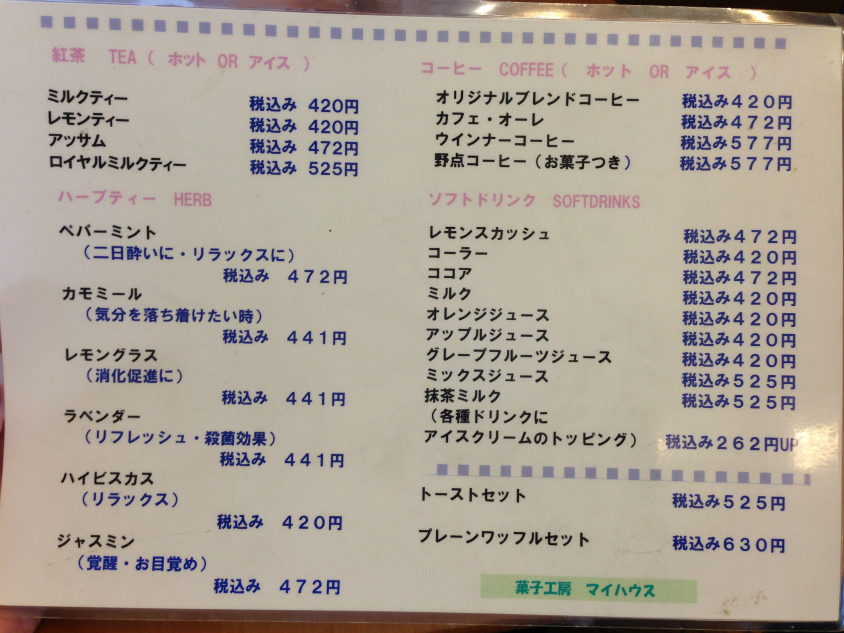 紅茶 TEA ( ホット OR アイス )
ミルクティー 税込み 420円
レモンティー 税込み 420円
アッサム 税込み 472円
ロイヤルミルクティー 税込み 525円
ハーブティー HERB
ペパーミント
(二日酔いに・リラックスに)
税込み 472円
カモミール
(気分を落ち着けたい時)
税込み 441円
レモングラス
(消化促進に)
税込み 441円
ラベンダー
(リフレッシュ・殺菌効果)
税込み 441円
ハイビスカス
(リラックス)
税込み 420円
ジャスミン
(覚醒・お目覚め)
税込み 472円
コーヒー COFFEE ( ホット OR アイス )
オリジナルブレンドコーヒー 税込み420円
カフェ・オーレ 税込み472円
ウインナーコーヒー 税込み577円
野点コーヒー(お菓子つき) 税込み577円
ソフトドリンク SOFTDRINKS
レモンスカッシュ 税込み472円
コーラー 税込み420円
ココア 税込み472円
ミルク 税込み420円
オレンジジュース 税込み420円
アップルジュース 税込み420円
グレープフルーツジュース 税込み420円
ミックスジュース 税込み525円
抹茶ミルク 税込み525円
(各種ドリンクに
アイスクリームのトッピング) 税込み262円UP
トーストセット 税込み525円
プレーンワッフルセット 税込み630円
菓子工房 マイハウス